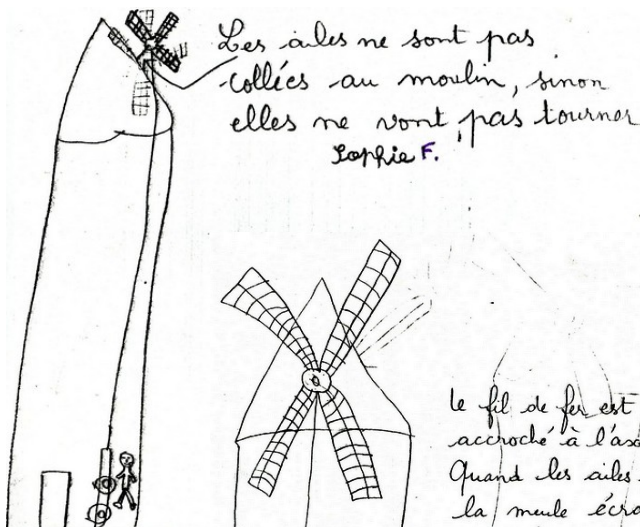 Les ailes ne sont pas
collées au moulin, sinon
elles ne vont pas tourner
Sophie F.
le fil de fer est
accroché à l'axe
Quand les ailes
la meule écra